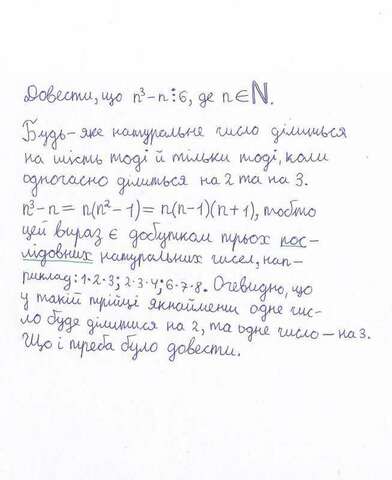 Довести, що n³-n⋮6, де n∈ℕ.
Будь-яке натуральне число ділиться
на шість тоді й тільки тоді, коли
одночасно ділиться на 2 та на 3.
n³-n = n(n²-1) = n(n-1)(n+1), тобто
цей вираз є добутком трьох пос-
лідовних натуральних чисел, нап-
риклад: 1·2·3; 2·3·4; 6·7·8. Очевидно, що
у такій трійці якнайменш одне чис-
ло буде ділитися на 2, та одне число – на 3.
Що і треба було довести.